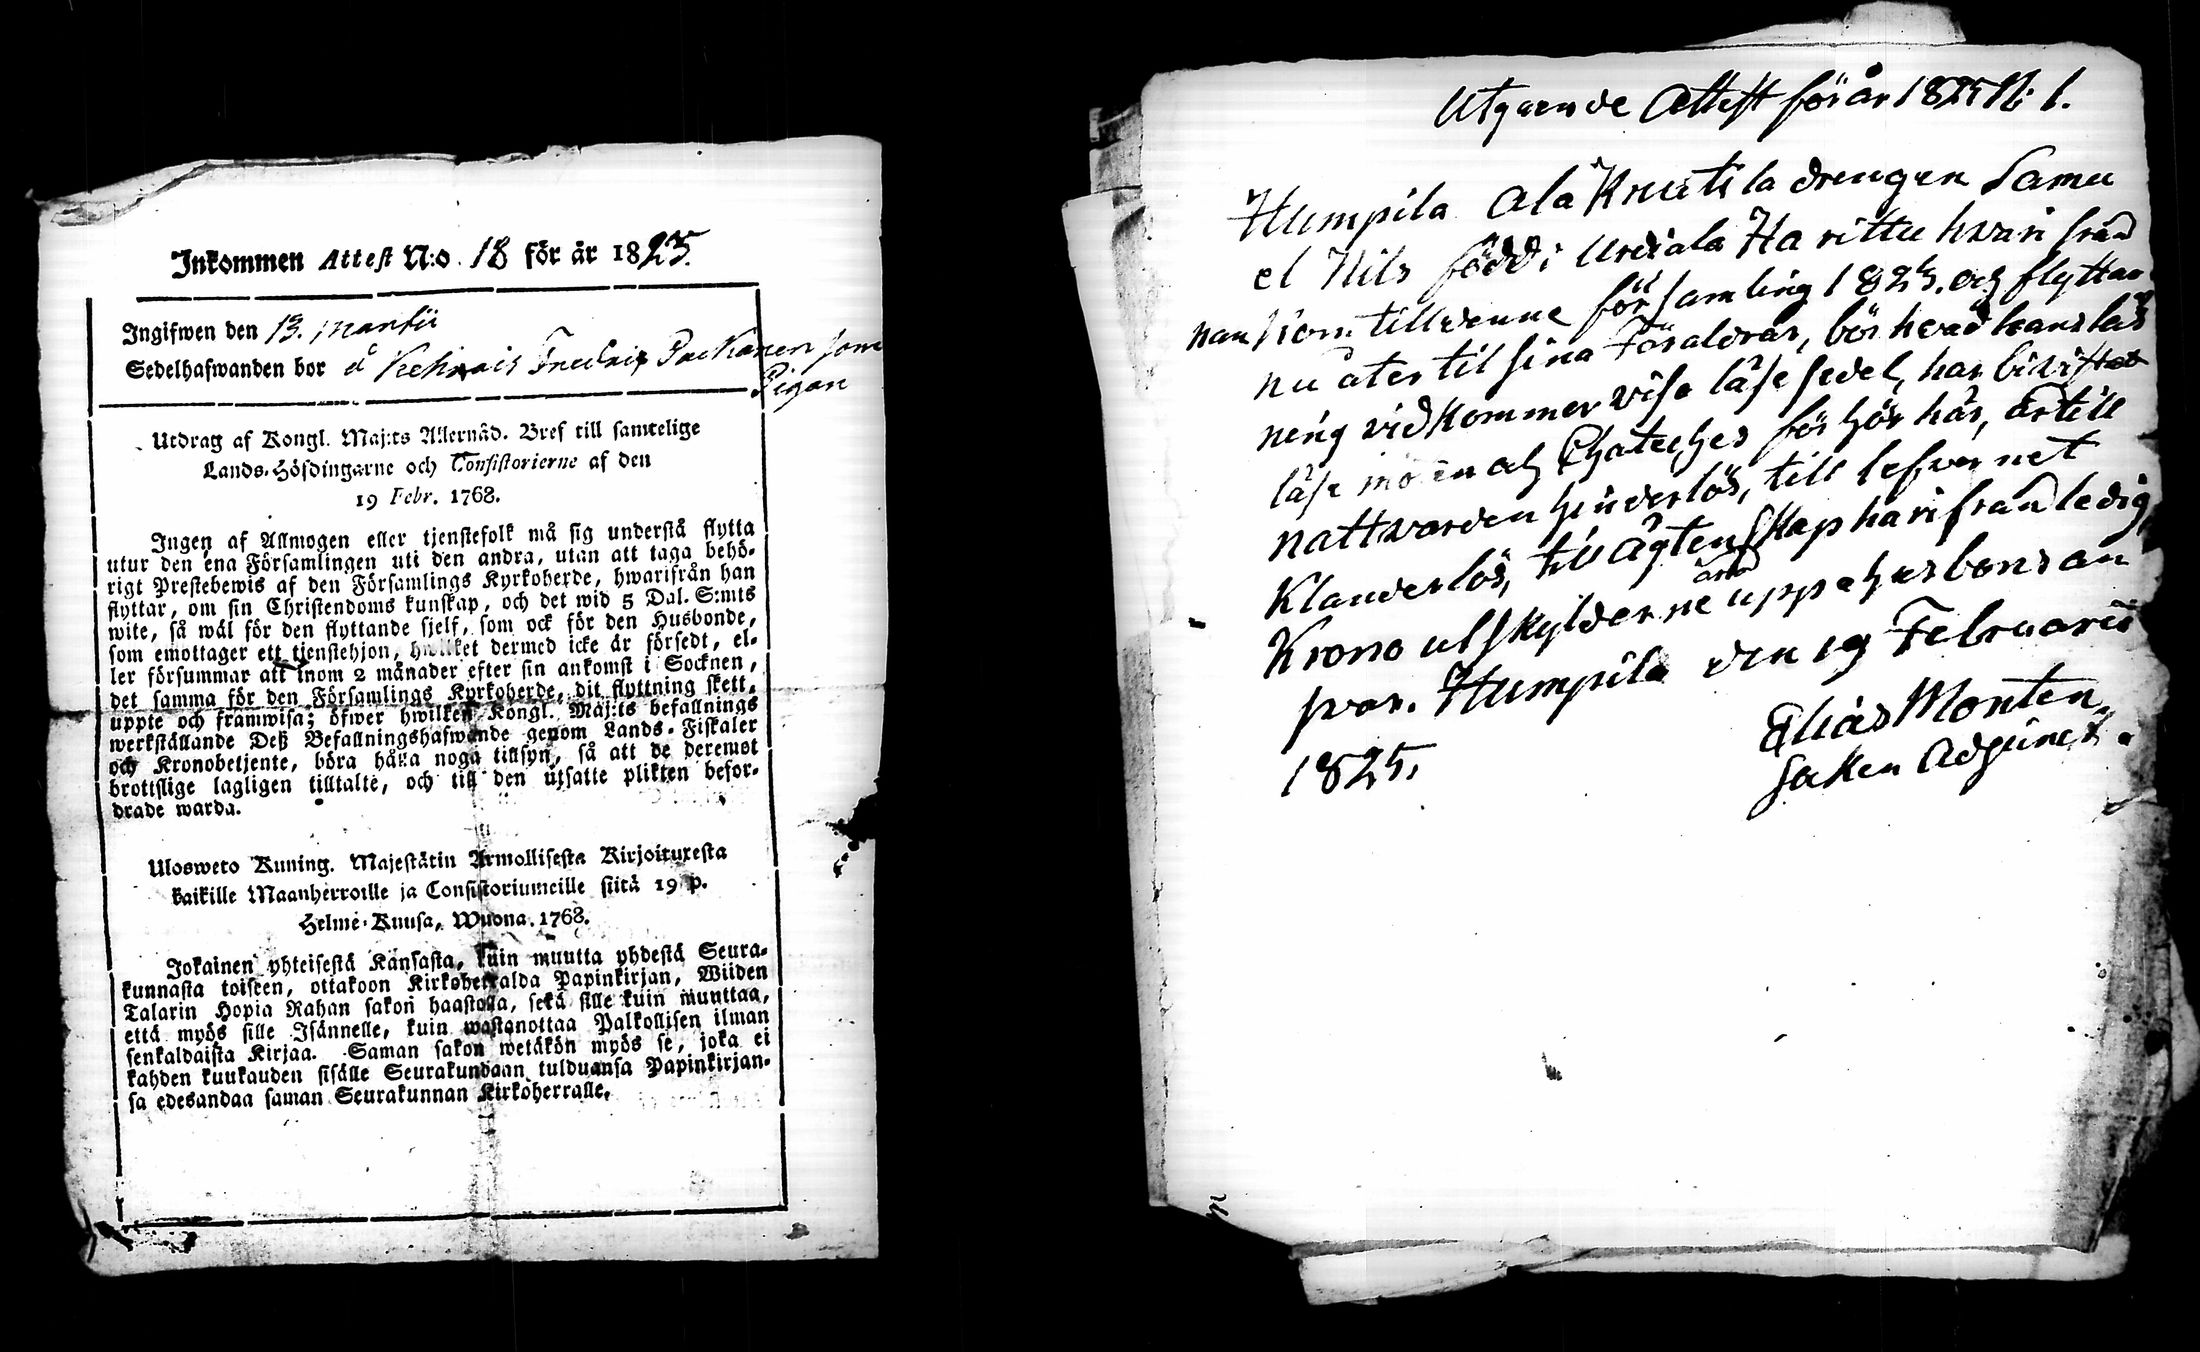 Inkommen Attest N:o. 18 för år 1825.
Ingifwen den 13. Martii
Sedelhafwanden bor å Fredric som
Pigan
Utdrag af Kongl. Maj:ts Allernåd. Bref till samtelige
Lands-Höfdingarne och Consistorierne af den
19 Febr. 1768.
Ingen af Allmogen eller tjenstefolk må sig understå flytta
utur den ena Församlingen uti den andra, utan att taga behö-
rigt Prestebewis af den Församlings Kyrkoherde, hwarifrån han
flyttar, om sin Christendoms kunskap, och det wid 5 Dal. S:mts
wite, så wäl för den flyttande sjelf, som ock för den Husbonde,
som emottager ett tjenstehjon, hwilket dermed icke är försedt, el-
ler försummar att inom 2 månader efter sin ankomst i Socknen,
det samma för den Församlings Kyrkoherde, dit flyttning skett,
uppte och framwisa; öfwer hwilken Kongl. Maj:ts befallnings
werkställande Deß Befallningshafwande genom Lands-Fiskaler
och Kronobetjente, böra hålla noga tillsyn, så att de deremot
brottslige lagligen tilltalte, och till den utsatte plikten befor-
drade warda.
Ulosweto Kuning. Majestätin Armollisesta Kirjoituxesta
kaikille Maanherroille ja Consistoriumeille siitä 19 p.
Helme-Kuusa, Wuona. 1768.
Jokainen yhteisestä Kansasta, kuin muutta yhdestä Seura-
kunnasta toiseen, ottakoon Kirkoherralda Papinkirjan, Wiiden
Talarin Hopia Rahan sakon haastolla, sekä sille kuin muuttaa,
että myös sille Isännelle, kuin wastanottaa Palkollisen ilman
senkaldaista Kirjaa. Saman sakon wetäkön myös se, joka ei
kahden kuukauden sisälle Seurakundaan tulduansa Papinkirjan-
sa edesandaa saman Seurakunnan Kirkoherralle.
Utgaende Attest för år 1825 N: 1.
Humpila Ala Knutila drengen Samu
el Nils född i Urdiala Ha rittu hvari från
han kom till denne för samling 1824. och flyttar
nu åter til sina Föräldrar, bör hvad hans läs
ning vid kommer visa läse sedel, har bivistat
läse möten och Chateches för hör här, är till
nattvarden hinderlös, till lefvernet
Klanderlös, til ägten skap hari från ledig,
Krono utskylderne andra uppå husbondsan
svar. Humpila den 19 Februarii
1825. Elias Monten
Soken Adjunct.